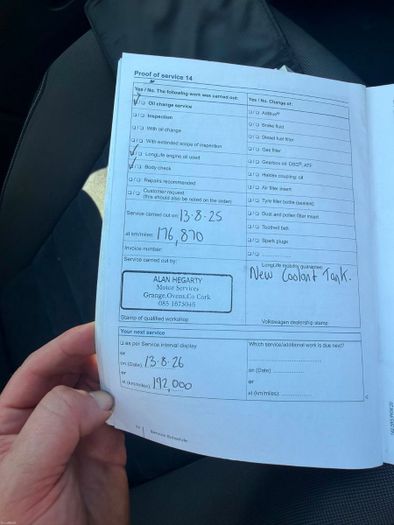 Proof of service 14
Yes / No. The following work was carried out:
Oil change service
Inspection
With oil change
With extended scope of inspection
LongLife engine oil used
Body check
Repairs recommended
Customer request
(this should also be noted on the order)
Service carried out on 13-8-25
at km/miles: 176,870
Invoice number:
Service carried out by:
ALAN HEGARTY
Motor Services
Grange, Ovens, Co Cork
Stamp of qualified workshop
Yes / No. Change of:
AdBlue®
Brake fluid
Diesel fuel filter
Gas filter
Gearbox oil: DSG®, ATF
Haldex coupling: oil
Air filter insert
Tyre filler bottle (sealant)
Dust and pollen filter insert
Toothed belt
Spark plugs
LongLife mobility guarantee
New Coolant Tank.
Volkswagen dealership stamp
Your next service
as per Service interval display
or
on (Date) 13-8-26
or
at (km/miles) 192,000
Which service/additional work is due next?
on (Date)
or
at (km/miles)
Service Schedule